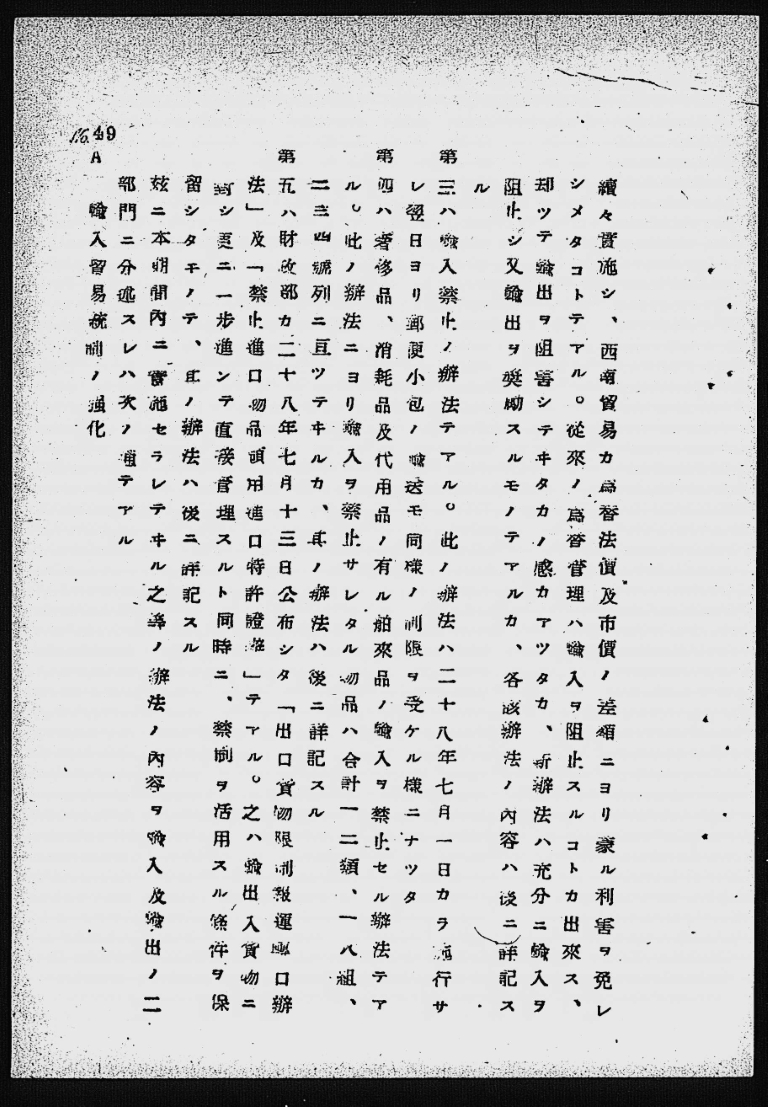 續々實施シ、西南貿易カ爲替法價及市價ノ差額ニヨリ蒙ル利害ヲ免レ
シメタコトテアル。從來ノ爲替管理ハ輸入ヲ阻止スルコトカ出來ス、
却ツテ輸出ヲ阻害シテヰタカノ感カアツタカ、新辦法ハ充分ニ輸入ヲ
阻止シ又輸出ヲ奬勵スルモノテアルカ、各該辦法ノ內容ハ後ニ詳記ス
ル
第三ハ輸入禁止ノ辦法テアル。此ノ辦法ハ二十八年七月一日カラ施行サ
レ翌日ヨリ郵便小包ノ輸送モ同樣ノ制限ヲ受ケル樣ニナツタ
第四ハ奢侈品、消耗品及代用品ノ有ル舶來品ノ輸入ヲ禁止セル辦法テア
ル。此ノ辦法ニヨリ輸入ヲ禁止サレタル物品ハ合計一二類、一八組、
二三四號列ニ亘ツテヰルカ、其ノ辦法ハ後ニ詳記スル
第五ハ財政部カ二十八年七月十三日公布シタ「出口貨物限制報運 口辦
法」及「禁止進口物品領用進口特許證辦 」テアル。之ハ輸出入貨物ニ
對シ更ニ一步進ンテ直接管理スルト同時ニ、禁制ヲ活用スル條件ヲ保
留シタモノテ、其ノ辦法ハ後ニ詳記スル
玆ニ本期間內ニ實施セラレテヰル之等ノ辦法ノ內容ヲ輸入及輸出ノ二
部門ニ分述スレハ次ノ通テアル
A 輸入貿易統制ノ强化
49